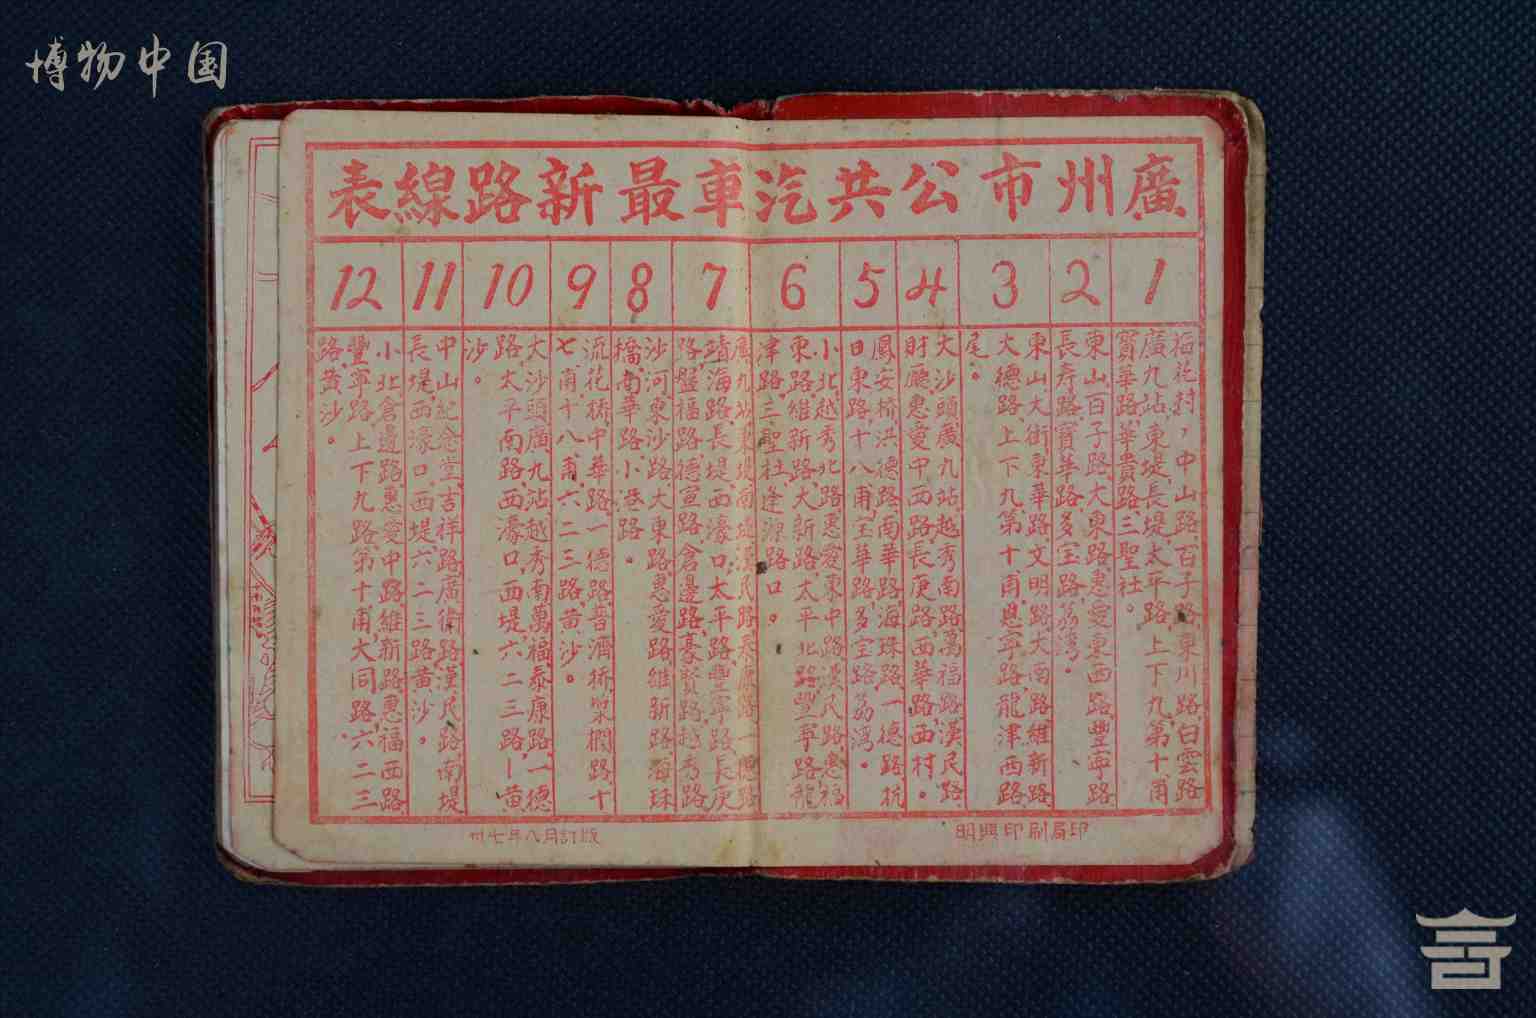 博物中国
廣州市公共汽車最新路線表
1
梅花村，中山路、百子路、東川路、白雲路
廣九站、東堤、長堤、太平路、上下九、第十甫
寶華路、華貴路、三聖社。
2
東山百子路、大東路、惠愛東西路、豐寧路
長寿路、寶華路、多宝路、荔湾。
3
東山大街、東華路、文明路、大南路、維新路
大德路、上下九、第十甫、恩寧路、龍津西路
尾。
4
大沙頭、廣九站、越秀南路、萬福路、漢民路、
財廳、惠愛中西路、長庚路、西華路、西村。
5
鳳安橋、洪德路、南華路、海珠路、一德路、杭
日東路、十八甫、宝華路、多宝路、荔湾。
6
小北、越秀北路、惠愛東中路、漢民路、惠福
東路、維新路、大新路、太平北路、豐寧路、龍
津路、三聖社、逢源路口。
7
廣九站、東堤、南堤、漢民路、泰康路、一德路
靖海路、長堤、西濠口、太平路、豐寧路、長庚
路、盤福路、德宣路、倉邊路、豪賢路、越秀路
8
沙河、東沙路、大東路、惠愛路、維新路、海珠
橋、南華路、小港路。
9
流花橋、中華路、一德路、普濟橋、菜欄路、十
七甫、十八甫、六二三路、黄沙。
10
大沙頭、廣九站、越秀南、萬福、泰康路、一德
路、太平南路、西濠口、西堤、六二三路、黄
沙。
11
中山紀念堂、吉祥路、廣衛路、漢民路、南堤
長堤、西濠口、西堤、六二三路、黄沙。
12
小北、倉邊路、惠愛中路、維新路、惠福西路
豐寧路、上下九路、第十甫、大同路、六二三
路、黄沙。
明興印刷局印
卅七年八月訂版